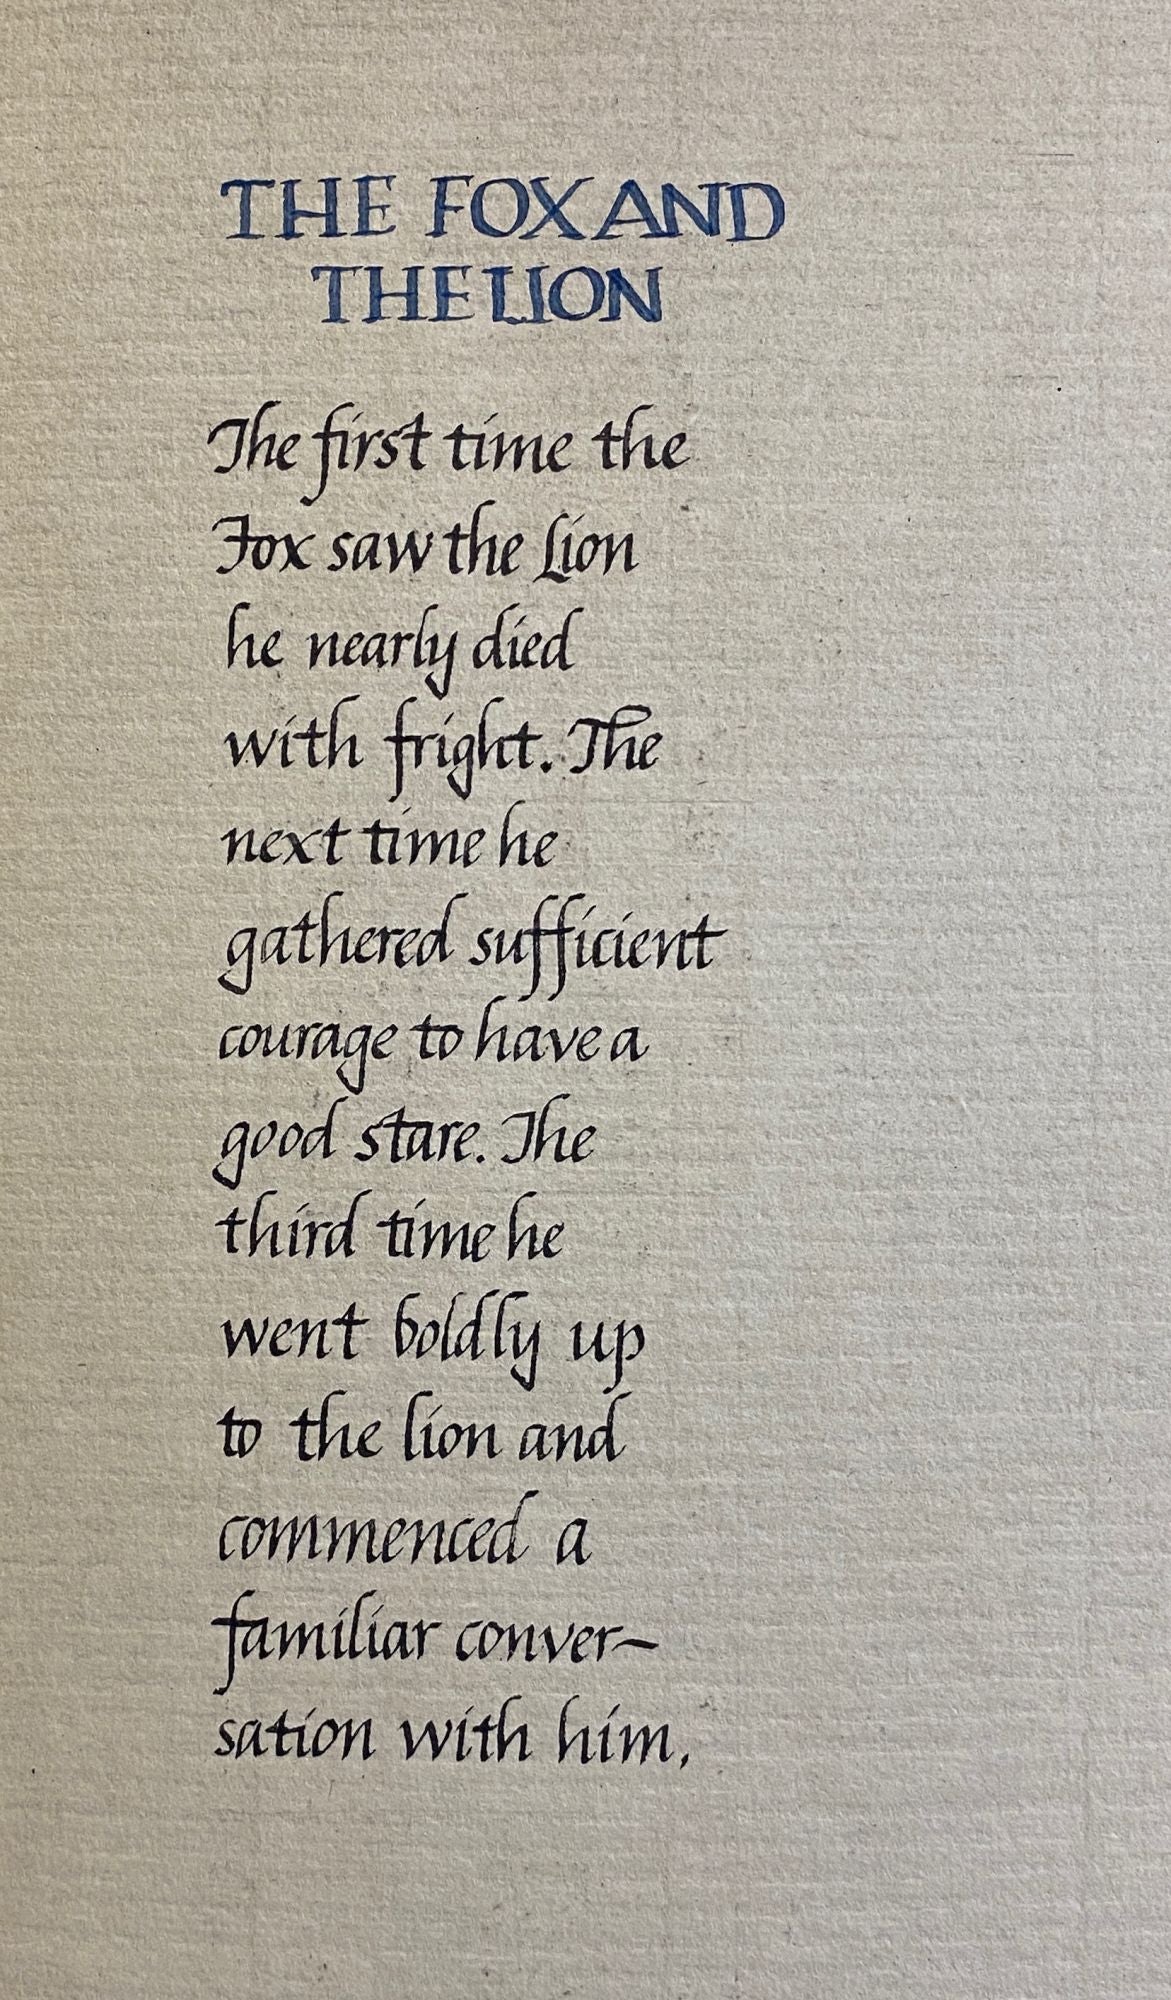 THE FOX AND
THE LION
The first time the
Fox saw the Lion
he nearly died
with fright. The
next time he
gathered sufficient
courage to have a
good stare. The
third time he
went boldly up
to the lion and
commenced a
familiar conver-
sation with him,